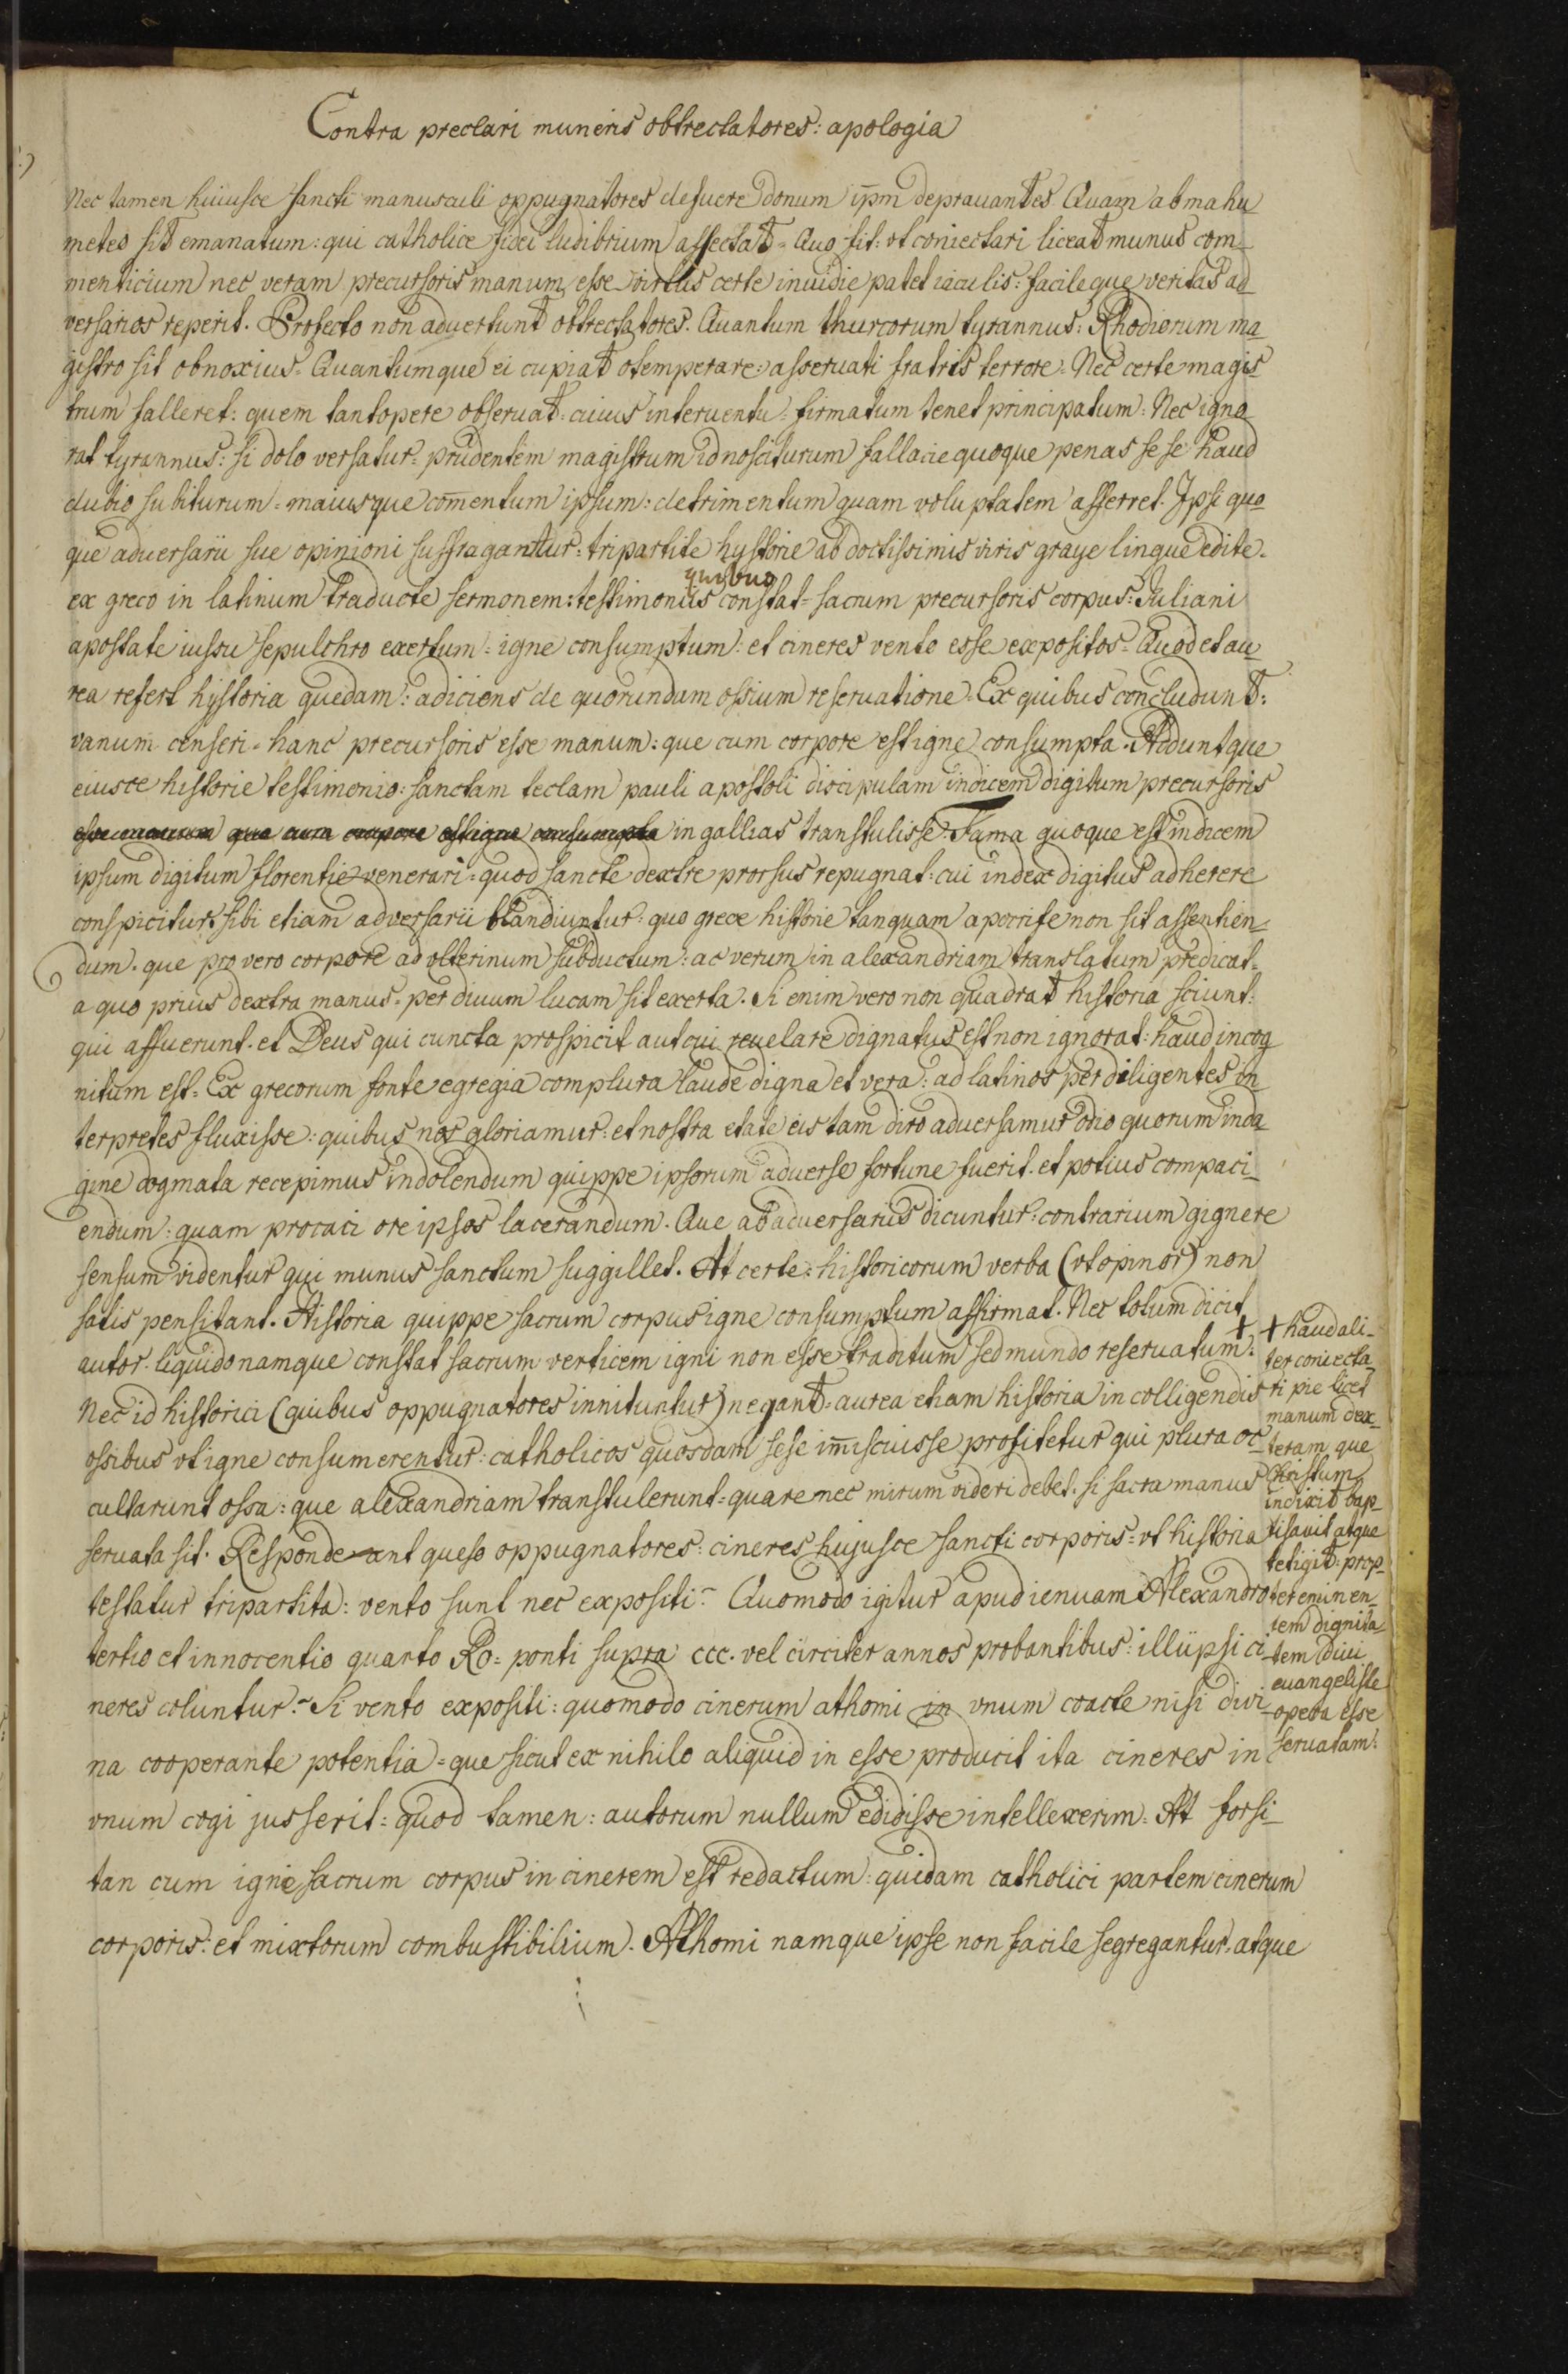 Contra preclari muneris obtrectatores: apologia
Nec tamen huiusce sancti manusculi oppugnatores defuere donum ip̄m deprauantes Quam ab mahu
metes sit emanatum: qui catholice fidei ludibrium affectat = Quo fit: vt coniectari liceat munus com-
menticium nec veram precursoris manum esse virtus certe inuidie patet iaculis: facileque veritas ad
versarios reperit. Profecto non aduertunt obtrectatores. Quantum thurcorum tyrannus: Rhodiorum ma
gistro sit obnoxius. Quantumque ei cupiat otemperare: asseruati fratris terrore. Nec certe magis
trum falleret: quem tantopere obseruat: cuius interuentu: firmatum tenet principatum: Nec igno
rat tyrannus: si dolo versatur= prudentem magistrum id nosciturum fallacie quoque penas se se haud
dubio subiturum = maiusque com̄entum ipsum: detrimentum quam voluptatem afferret. Ipsi quo-
que aduersarii sue opinioni suffragantur: tripartite hystorie ab doctissimis viris graye lingue edite.
quibus
ex greco in latinum traducte sermonem: testimoniis constat= sacrum precursoris corpus: Juliani
apostate iussu sepulchro exertum: igne consumptum: et cineres vento esse expositos= Quod et au
rea refert hystoria quedam: adiciens de quorundum ossium reseruatione. Ex quibus concludunt:
vanum censeri = hanc precursoris esse manum: que cum corpore est igne consumpta. Adduntque
eiusce historie testimonio: sanctam teclam pauli apostoli discipulam indicem digitum precursoris
esse manum que cum corpore est igne consumpta in gallias transtulisse. Fama quoque est indicem
ipsum digitum florentie venerari = quod sancte dextre prorsus repugnat: cui index digitus adherere
conspicitur: sibi etiam adversarii blandiuntur: quo grece historie tanquam apocrife non sit assentien-
dum. que pro vero corpore adolterinum subductum: ac verum in alexandriam translatum predicat=
a quo prius dextra manus= per diuum lucam sit exerta. Si enim vero non quadrat historia sciunt:
qui affuerunt. et Deus qui cuncta prospicit aut cui reuelare dignatus est non ignorat: haud incog
nitum est= Ex grecorum fonte egregia complura laude digna et vera: ad latinos per diligentes in
terpretes fluxisse: quibus nos gloriamur: et nostra etate eis tam diro aduersamur odio quorum inda
gine dogmata recepimus indolendum quippe ipsorum aduerse fortune fuerit. et potius compaci-
endum: quam procaci ore ipsos lacerandum. Que ab aduersariis dicuntur: contrarium gignere
sensum videntur qui munus sanctum suggillet. At certe: historicorum verba (vt opinor) non
satis pensitant. Historia quippe sacrum corpus igne consumptum affirmat. Nec totum dicit
autor. liquido namque constat sacrum verticem igni non esse traditum sed mundo reseruatum: +
Nec id historici (quibus oppugnatores innituntur) negant= aurea etiam historia in colligendis
ossibus vt igne consumerentur: catholicos quosdam sese im̄iscuisse profitetur qui plura oc-
cultarunt ossa: que alexandriam transtulerunt= quare nec mirum videri debet. si sacra manus
seruata sit. Responde ant queso oppugnatores: cineres hujusce sancti corporis= vt historia
testatur tripartita: vento sunt nec expositi? Quomodo igitur apud ienuam Alexandro
tertio et innocentio quarto Ro= ponti supra ccc. vel circiter annos probantibus: illi ipsi ci
neres coluntur? Si vento expositi: quomodo cinerum athomi in vnum coacte nisi divi-
na cooperante potentia = que sicut ex nihilo aliquid in esse producit ita cineres in
vnum cogi jusserit= quod tamen: autorum nullum edidisse intellexerim: At forsi-
tan cum igne sacrum corpus in cinerem est redactum: quidam catholici partem cinerum
corporis: et mixtorum combustibilium. Athomi namque ipse non facile segregantur. atque
+ haud ali-
ter coniecta-
ri pie licet
manum dex-
teram que
Christum
indixit bap-
tisauit atque
tetigit: prop-
ter eminen-
tem dignita-
tem diui
euangeliste
opera esse
seruatam.